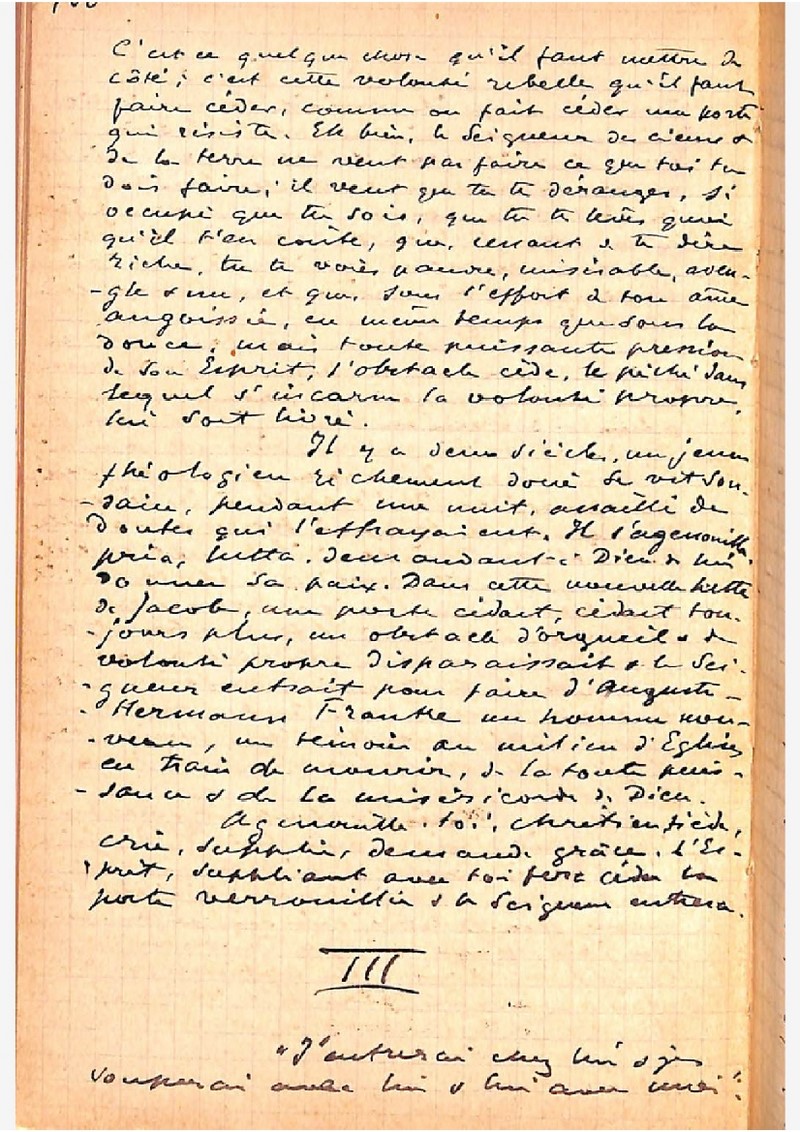 C'est ce quelque chose qu'il faut mettre de
côté ; c'est cette volonté rebelle qu'il faut
faire céder, comme on fait céder une porte
qui résiste. Eh bien, le Seigneur des cieux &
de la terre ne veut pas faire ce que toi tu
dois faire ; il veut que tu te déranges, si
occupé que tu sois, que tu te lèves quoi
qu'il t'en coûte, que, cessant de te dire
riche, tu te voies pauvre, misérable, aveu-
-gle & nu, et que, sous l'effort de ton âme
angoissée, en même temps que sous la
douce, mais toute puissante pression
de son Esprit, l'obstacle cède, le péché dans
lequel s'incarne la volonté propre,
lui soit livré.
Il y a deux siècles, un jeune
théologien richement doué se vit sou-
-dain, pendant une nuit, assailli de
doutes qui l'effrayaient. Il s'agenouilla,
pria, lutta, demandant à Dieu de lui
donner sa paix. Dans cette nouvelle lutte
de Jacob, une porte cédait, cédait tou-
-jours plus, un obstacle d'orgueil & de
volonté propre disparaissait & le Sei-
-gneur entrait pour faire d'Auguste-
-Hermann Franke un homme nou-
-veau, un témoin au milieu d'Eglises
en train de mourir, de la toute puis-
-sance & de la miséricorde de Dieu.
Agenouille-toi, chrétien tiède,
crie, supplie, demande grâce. L'Es-
-prit, suppliant avec toi fera céder la
porte verrouillée & le Seigneur entrera.
III
"J'entrerai chez lui & je
souperai avec lui & lui avec moi".